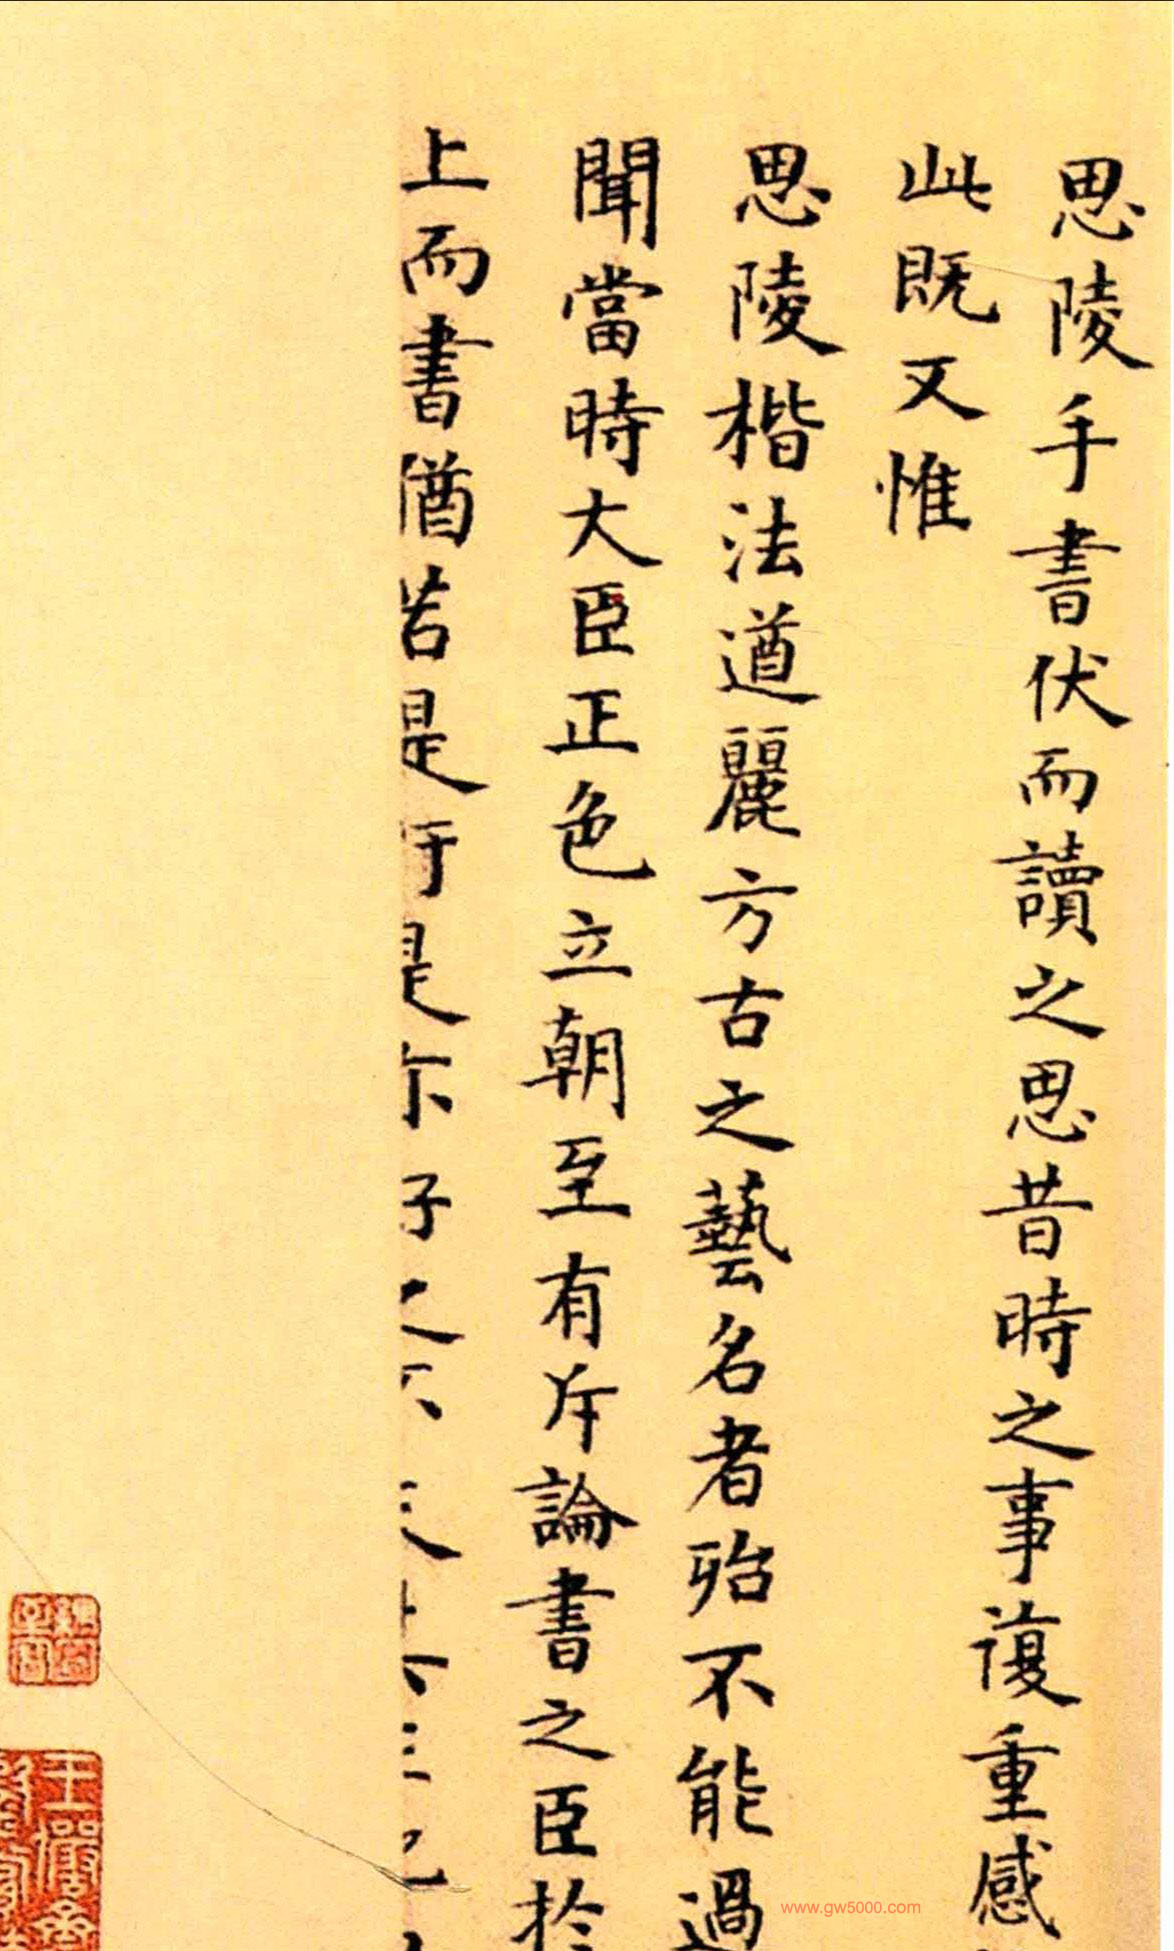 思陵手書伏而讀之思昔時之事復重感
此既又惟
思陵楷法遒麗方古之藝名者殆不能過
聞當時大臣正色立朝至有斥論書之臣於
上而書猶若是於是
子之
www.gw5000.com